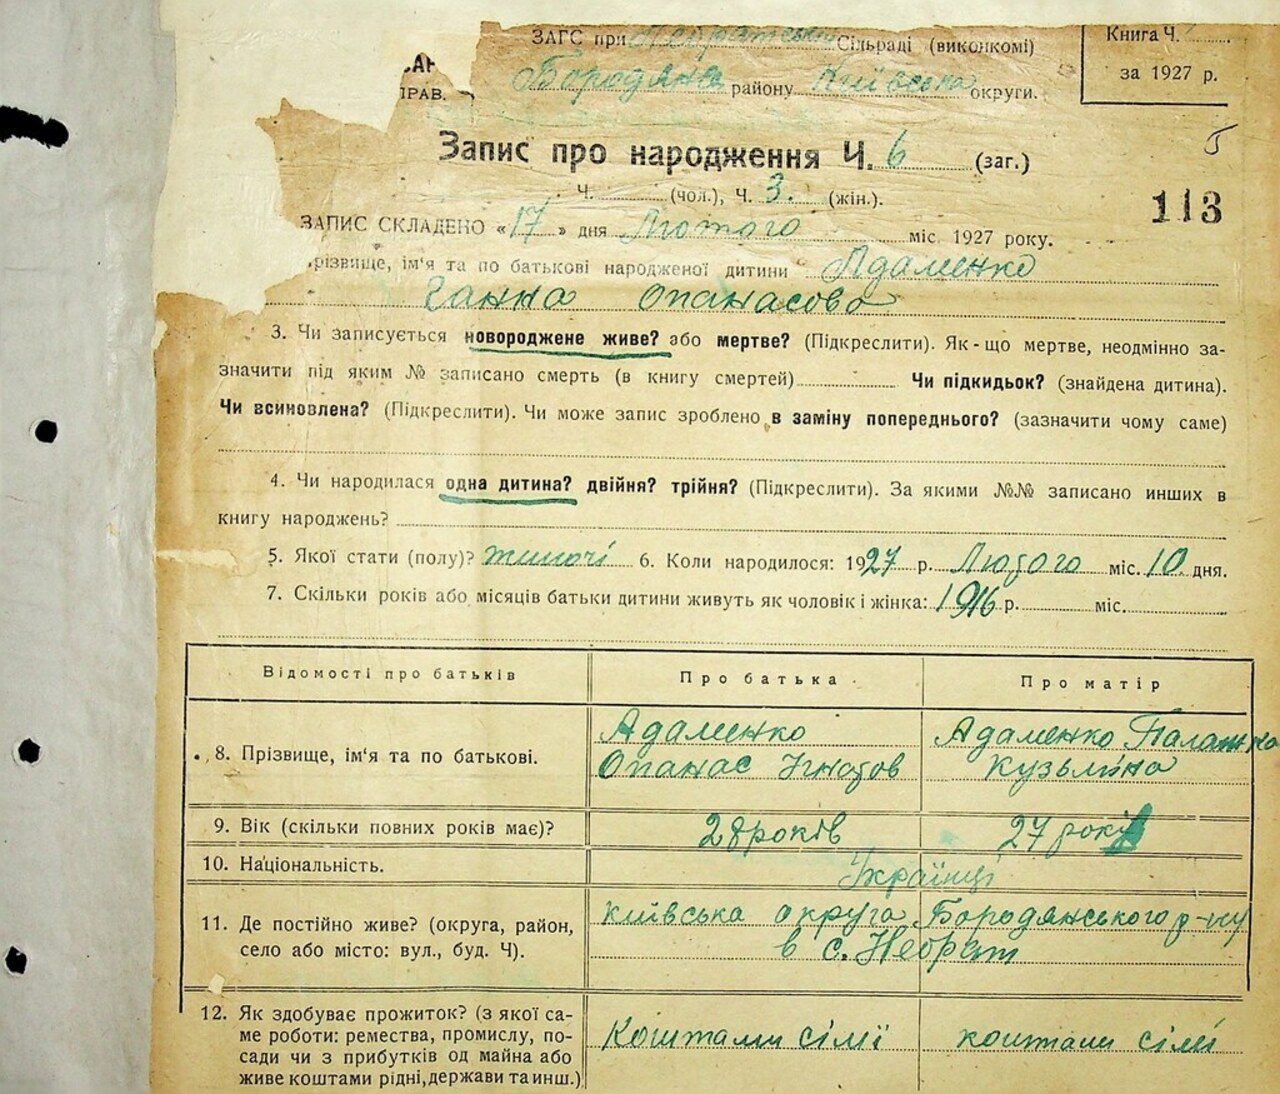 ЗАГС при Сільраді (виконкомі)
Книга Ч.
Бородянс району Київська округи.
за 1927 р.
ПРАВ.
Запис про народження Ч. 6 (заг.)
5
Ч. (чол.), Ч. 3. (жін.).
113
ЗАПИС СКЛАДЕНО «17» дня Лютого міс. 1927 року.
різвище, ім'я та по батькові народженої дитини Адаменко
Ганна Опанасова
3. Чи записується новороджене живе? або мертве? (Підкреслити). Як-що мертве, неодмінно за-
значити під яким № записано смерть (в книгу смертей) Чи підкидьок? (знайдена дитина).
Чи всиновлена? (Підкреслити). Чи може запис зроблено в заміну попереднього? (зазначити чому саме)
4. Чи народилася одна дитина? двійня? трійня? (Підкреслити). За якими №№ записано инших в
книгу народжень?
5. Якої стати (полу)? жиночі 6. Коли народилося: 1927 р. Лютого міс. 10 дня.
7. Скільки років або місяців батьки дитини живуть як чоловік і жінка: 1916 р. міс.
Відомості про батьків Про батька Про матір
8. Прізвище, ім'я та по батькові. Адаменко Опанас Ігнатов Адаменко Палажка Кузьміна
9. Вік (скільки повних років має)? 28 років 27 років
10. Національність. Українці
11. Де постійно живе? (округа, район, Київська округа Бородянського р-ну
село або місто: вул., буд. Ч). в с. Небрат
12. Як здобуває прожиток? (з якої са-
ме роботи: ремества, промислу, по- Коштами сімї коштами сімї
сади чи з прибутків од майна або
живе коштами рідні, держави та инш.)